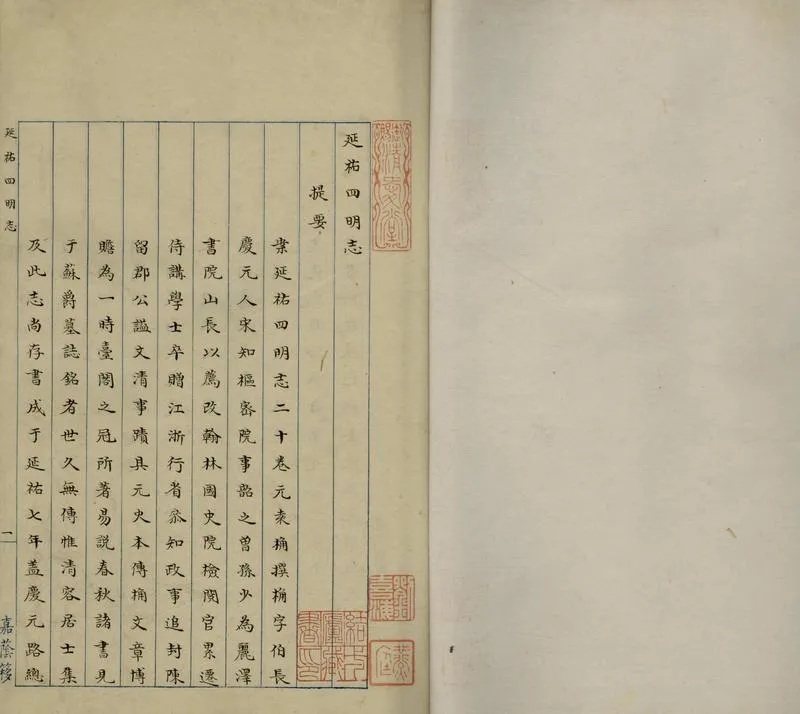 延祐四明志
提要
案延祐四明志二十卷元袁桷撰桷字伯長
慶元人宋知樞密院事韶之曾孫少為麗澤
書院山長以薦改翰林國史院檢閱官累遷
侍講學士卒贈江浙行省叅知政事追封陳
留郡公謚文清事蹟具元史本傳桷文章博
贍為一時臺閣之冠所著易說春秋諸書見
于蘇爵墓誌銘者世久無傳惟清容居士集
及此志尚存書成于延祐七年盖慶元路總
延祐四明志
二
嘉蔭簃